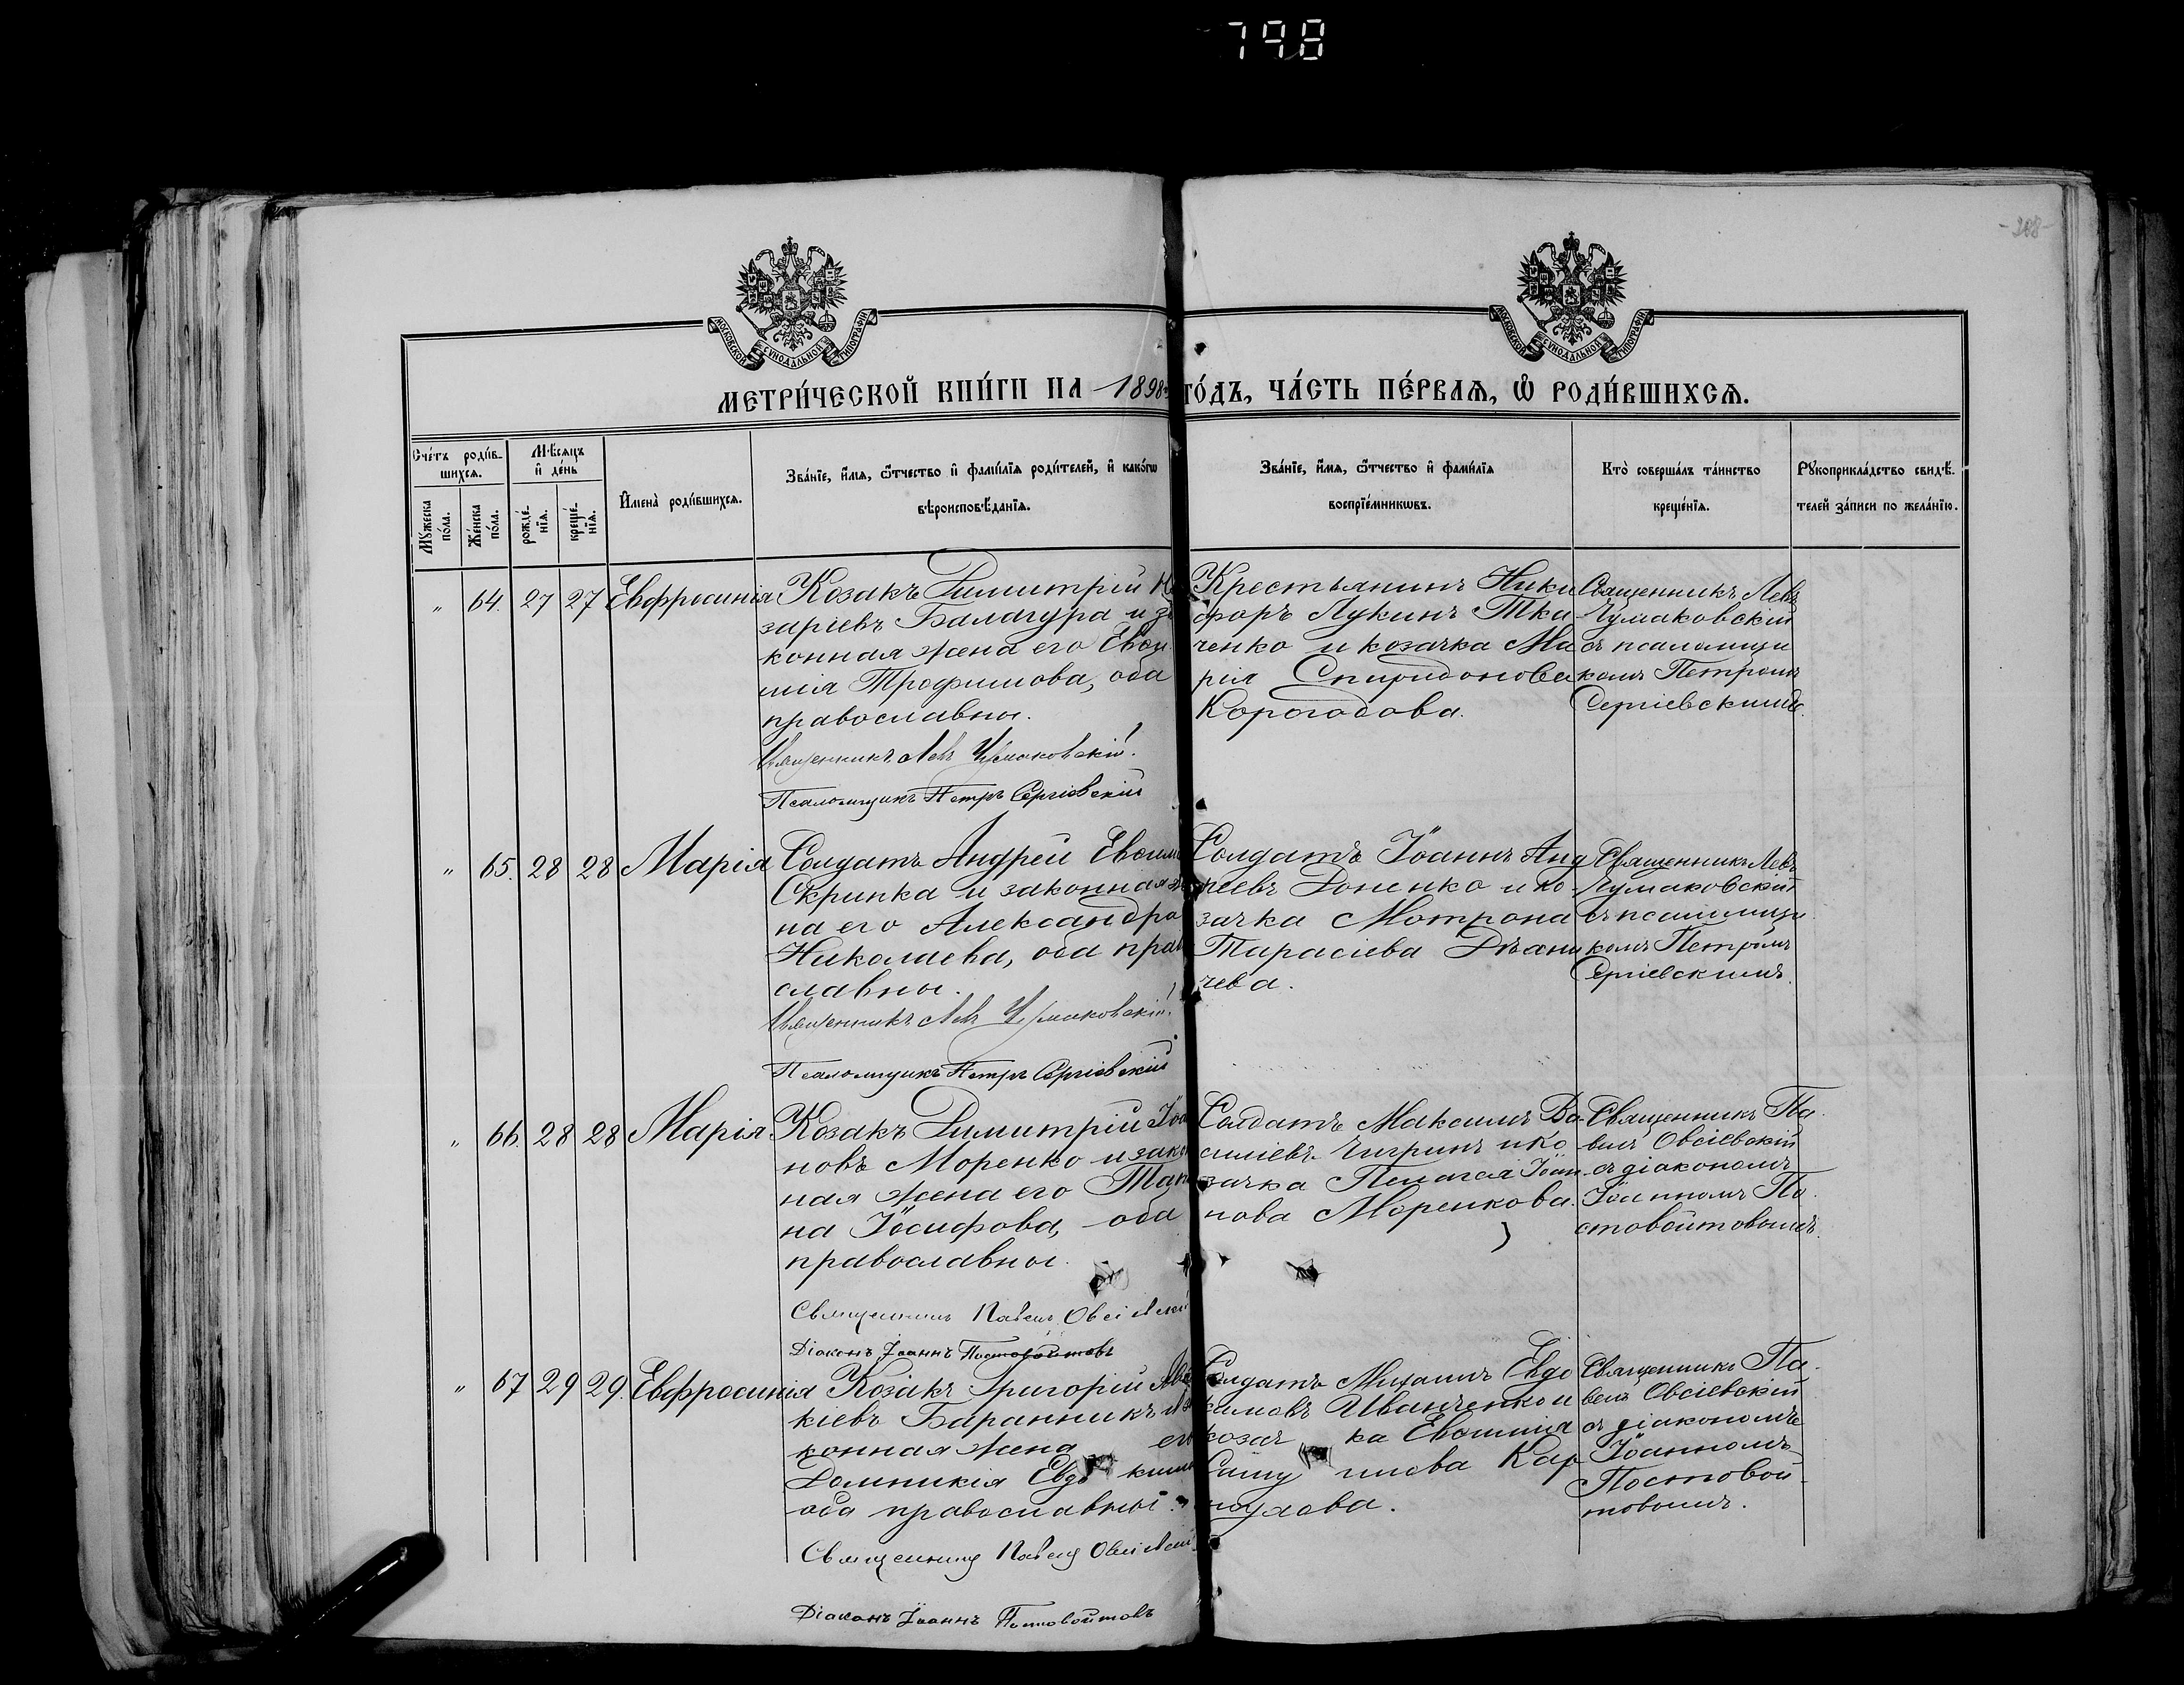 798
-208-
МОСКОВСКОЙ СУНОДАЛЬНОЙ ТИПОГРАФІИ
МОСКОВСКОЙ СУНОДАЛЬНОЙ ТИПОГРАФІИ
МЕТРИ́ЧЕСКОЙ КНИ́ГИ НА 1898 ГО́ДЪ, ЧА́СТЬ ПЕ́РВАѦ, Ѽ РОДИ́ВШИХСѦ.
Сче́тъ роди́в-
шихсѧ.
Мꙋжеска по́ла.
Же́нска по́ла.
Мѣ́сѧцъ и҆ де́нь
рожде́-
нїѧ.
креще́-
нїѧ.
И҆мена̀ роди́вшихсѧ.
Зва́нїе, и҆́мѧ, ѻ҆́тчество и҆ фамѝлїѧ роди́телей, и҆ како́гѡ
вѣроисповѣ́данїѧ.
Зва́нїе, и҆́мѧ, ѻ҆́тчество и҆ фами́лїѧ
воспрїе́мникѡвъ.
Кто̀ соверша́лъ та́инство
креще́нїѧ.
Рꙋкоприкла́дство свидѣ́-
телей за́писи по жела́нїю.
" 64. 27 27 Евфросинія
Козакъ Димитрій
заріевъ Балагура и за
конная жена его Евѳи
мія Трофимова, оба
православны.
Священникъ Левъ Чумаковскій
Псаломщикъ Петръ Сергіевскій
Крестьянинъ Ники
форъ Лукинъ Тка
ченко и козачка Ма
рія Спиридонова
Корогодова.
Священникъ Левъ
Чумаковскій
съ псаломщи
комъ Петромъ
Сергіевскимъ.
" 65. 28 28 Марія
Солдатъ Андрей Евѳим
Скрипка и законная же
на его Александра
Николаева, оба прав
славны.
Священникъ Левъ Чумаковскій
Псаломщикъ Петръ Сергіевскій
Солдатъ Іоаннъ Анд
реевъ Доненко и ко-
зачка Мотрона
Тарасіева Дѣхни
чева.
Священникъ Левъ
Чумаковскій
съ псаломщи
комъ Петромъ
Сергіевскимъ.
" 66. 28 28 Марія
Козакъ Димитрій Іоа
новъ Моренко и закон
ная жена его Татi
на Іосифова, оба
православны.
Священникъ Павелъ Овсіевскій
Діаконъ Іоаннъ Постовойтовъ
Солдатъ Максимъ Ва-
силіевъ Чигринъ и ко
зачка Пелагея Іоан-
нова Моренкова.
Священникъ Па-
велъ Овсіевскій
съ діакономъ
Іоанномъ По-
стовойтовымъ.
" 67 29 29. Евфросинія
Козакъ Григорій
кіевъ Баранникъ и за
конная жена его
Домникія Евдокимо
оба православны.
Священникъ Павелъ Овсіевскій
Діаконъ Іоаннъ Постовойтовъ
Солдатъ Михаилъ Евдо
кимовъ Иванченко и
козачка Евѳимія
Самуилова Кар
пухова.
Священникъ Па-
велъ Овсіевскій
съ діакономъ
Іоанномъ
Постовой-
товымъ.